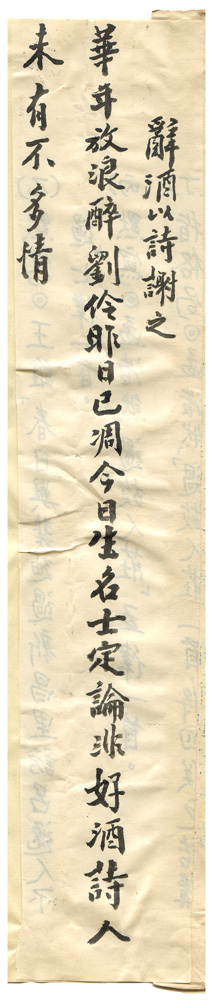 辭酒以詩謝之
華年放浪醉劉伶昨日已凋今日生名士定論非好酒詩人
未有不多情